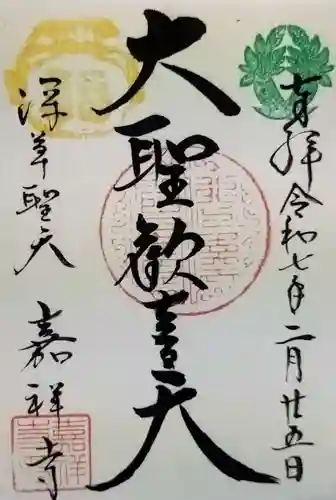 奉拝 令和七年二月廿五日
大聖歓喜天
深草聖天 嘉祥寺